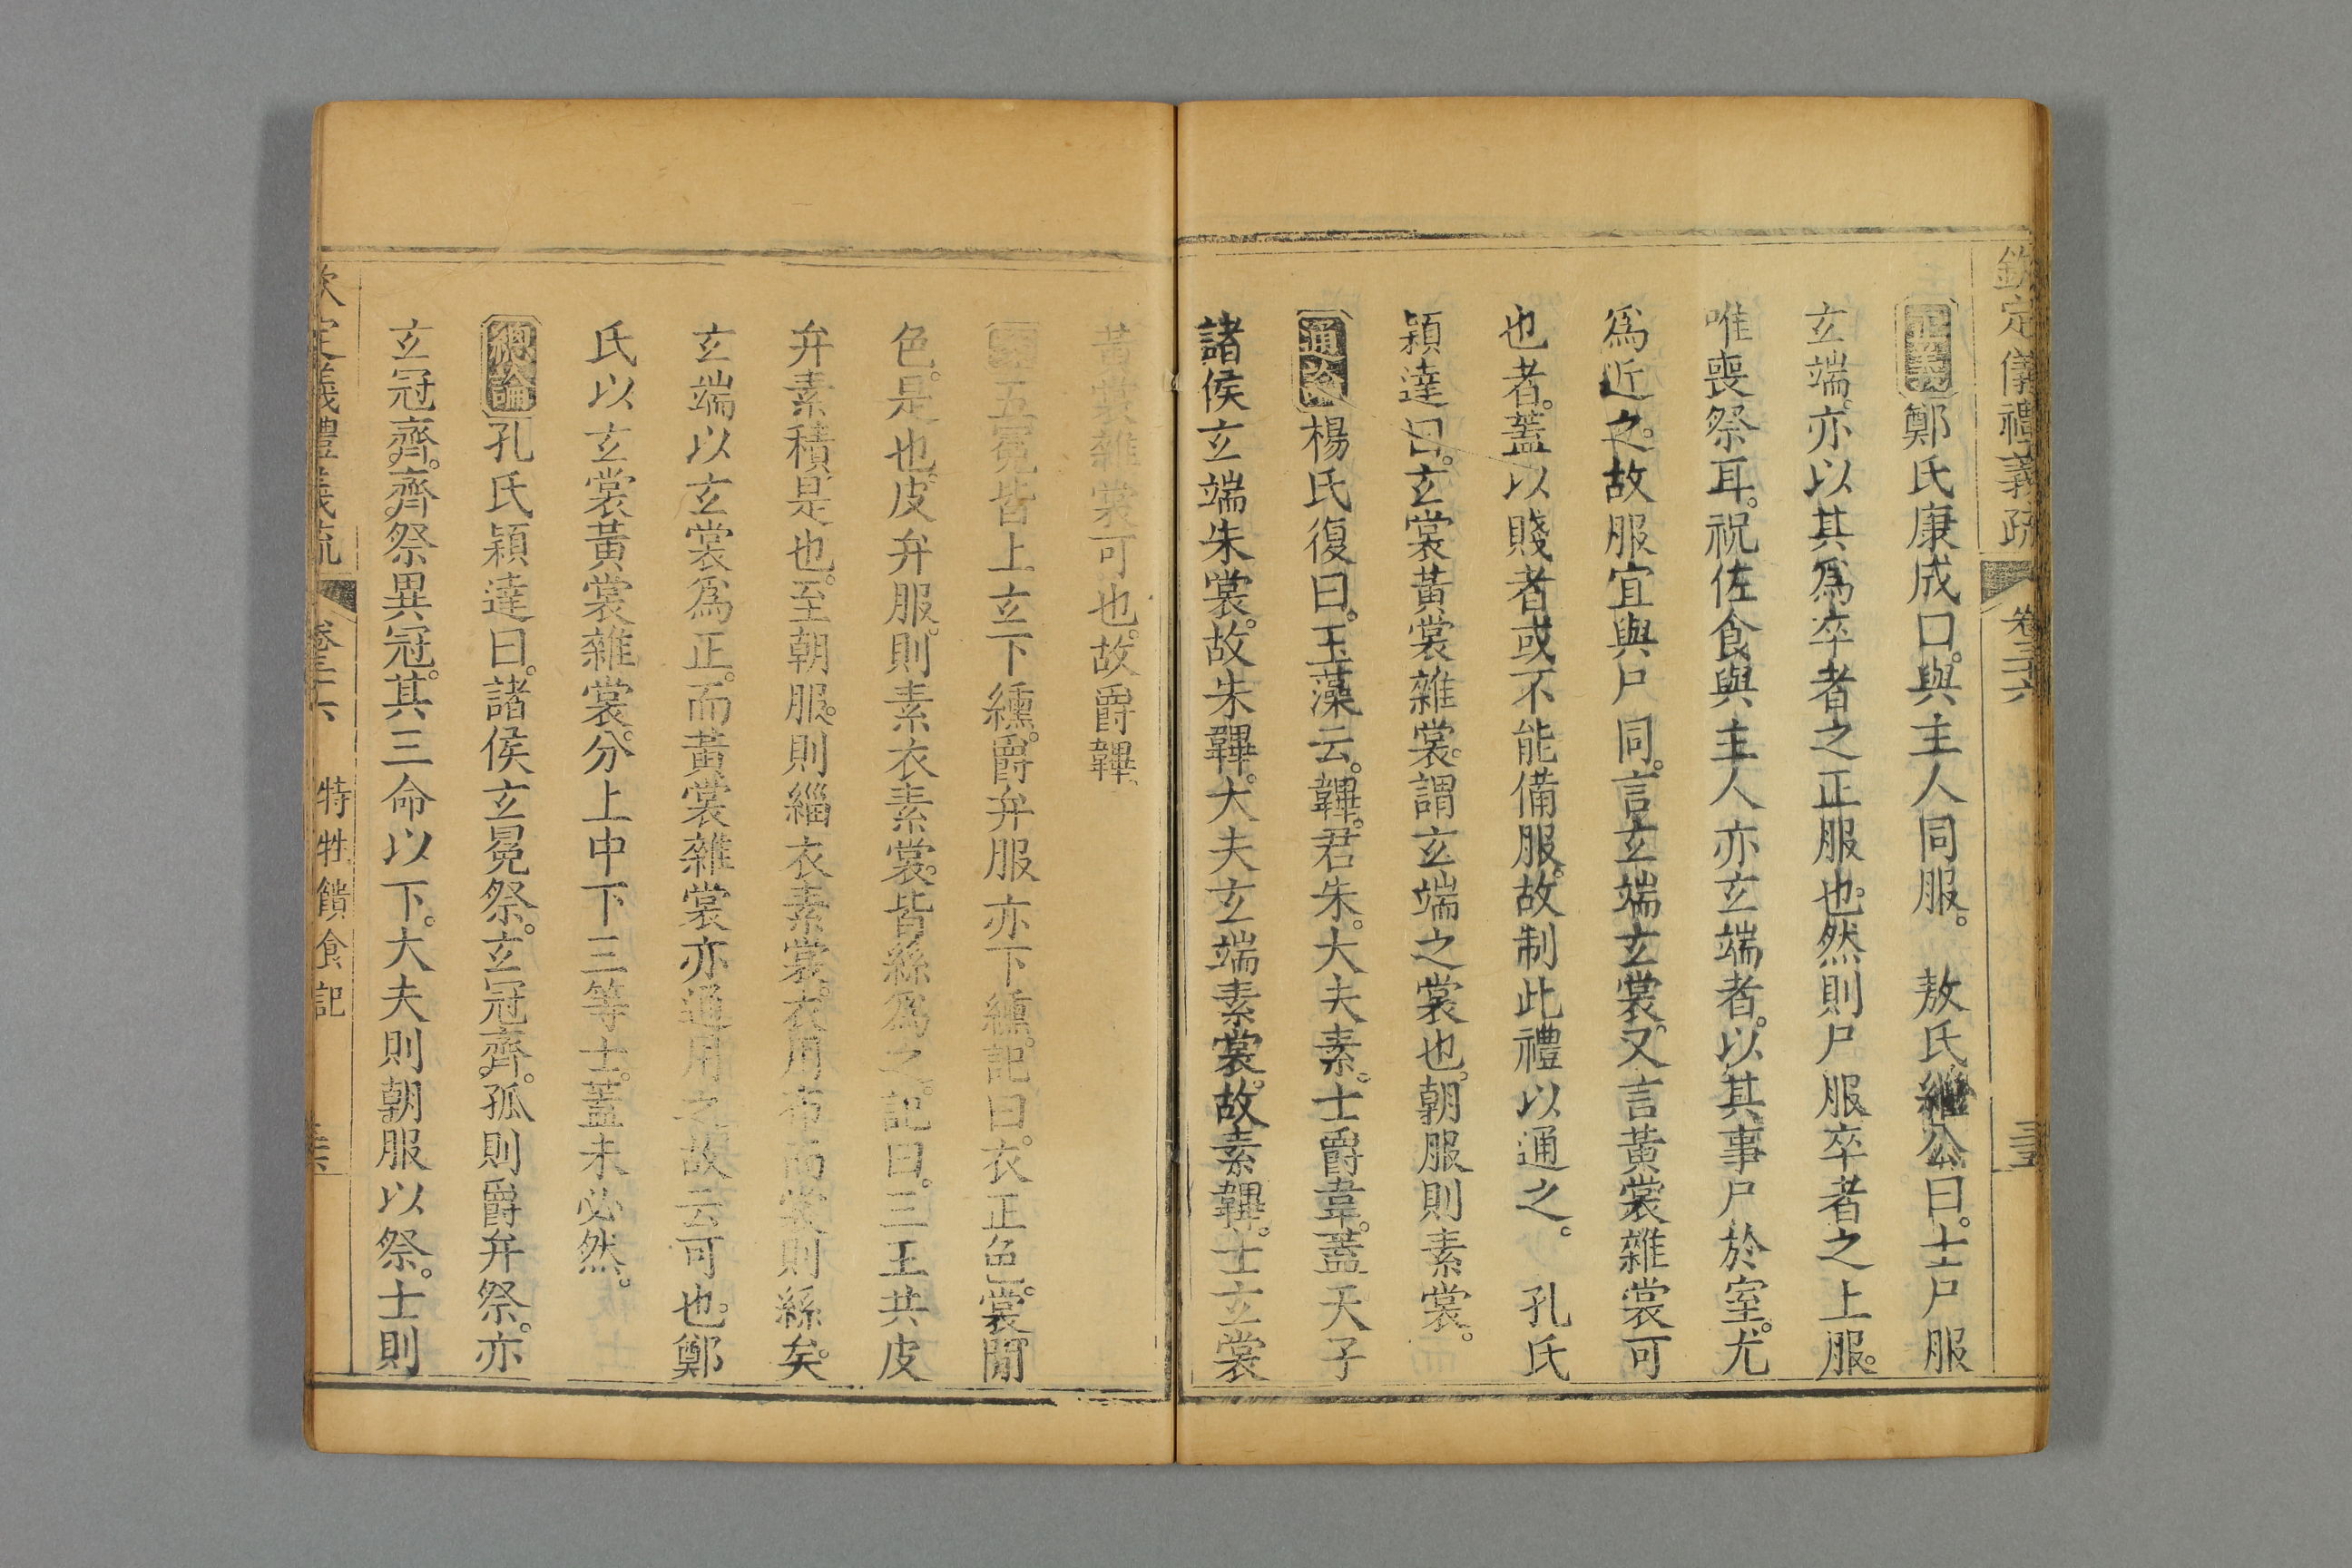 欽定儀禮義疏 卷三十六 三五
正義鄭氏康成曰。與主人同服。 敖氏繼公曰。士尸服
玄端。亦以其爲卒者之正服也。然則尸服卒者之上服。
唯喪祭耳。祝佐食與主人亦玄端者。以其事尸於室。尤
爲近之。故服宜與尸同。言玄端玄裳。又言黃裳雜裳可
也者。蓋以賤者或不能備服。故制此禮以通之。 孔氏
穎達曰。玄裳黃裳雜裳。謂玄端之裳也。朝服則素裳。
通論楊氏復曰。玉藻云。韠。君朱。大夫素。士爵韋。蓋天子
諸侯玄端朱裳。故朱韠。大夫玄端素裳。故素韠。士玄裳
黃裳雜裳可也。故爵韠。
五冕皆上玄下纁。爵弁服亦下纁。記曰。衣正色。裳閒
色。是也。皮弁服。則素衣素裳。皆絲爲之。記曰。三王共皮
弁素積。是也。至朝服。則緇衣素裳。衣用布而裳則絲矣。
玄端以玄裳爲正。而黃裳雜裳亦通用之。故云可也。鄭
氏以玄裳黃裳雜裳。分上中下三等士。蓋未必然。
總論孔氏穎達曰。諸侯玄冕祭。玄冠齊。孤則爵弁祭。亦
玄冠齊。齊祭異冠。其三命以下。大夫則朝服以祭。士則
欽定儀禮義疏 卷三十六 特牲饋食記